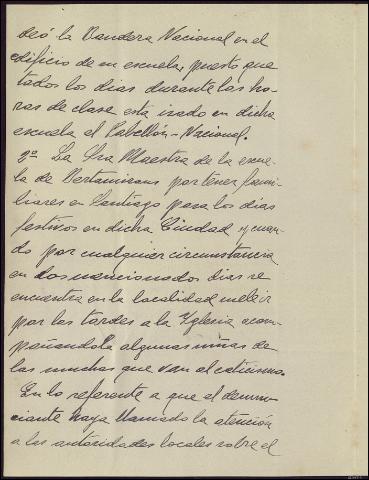 deó la Bandera Nacional en el
edificio de su escuela, puesto que
todos los dias durante las ho-
ras de clase está izado en dicha
escuela el Pabellón-Nacional.
2º La Sra Maestra de la escue-
la de Bertamirans por tener fami-
liares en Santiago pasa los dias
festivos en dicha Ciudad y cuan-
do por cualquier circunstancia
en dos mencionados dias se
encuentra en la localidad suele ir
por las tardes a la Yglesia acom-
pañandola algunas niñas de
las muchas que van al catecismo.
En lo referente a que el denun-
ciante haya llamado la atención
a las autoridades locales sobre el